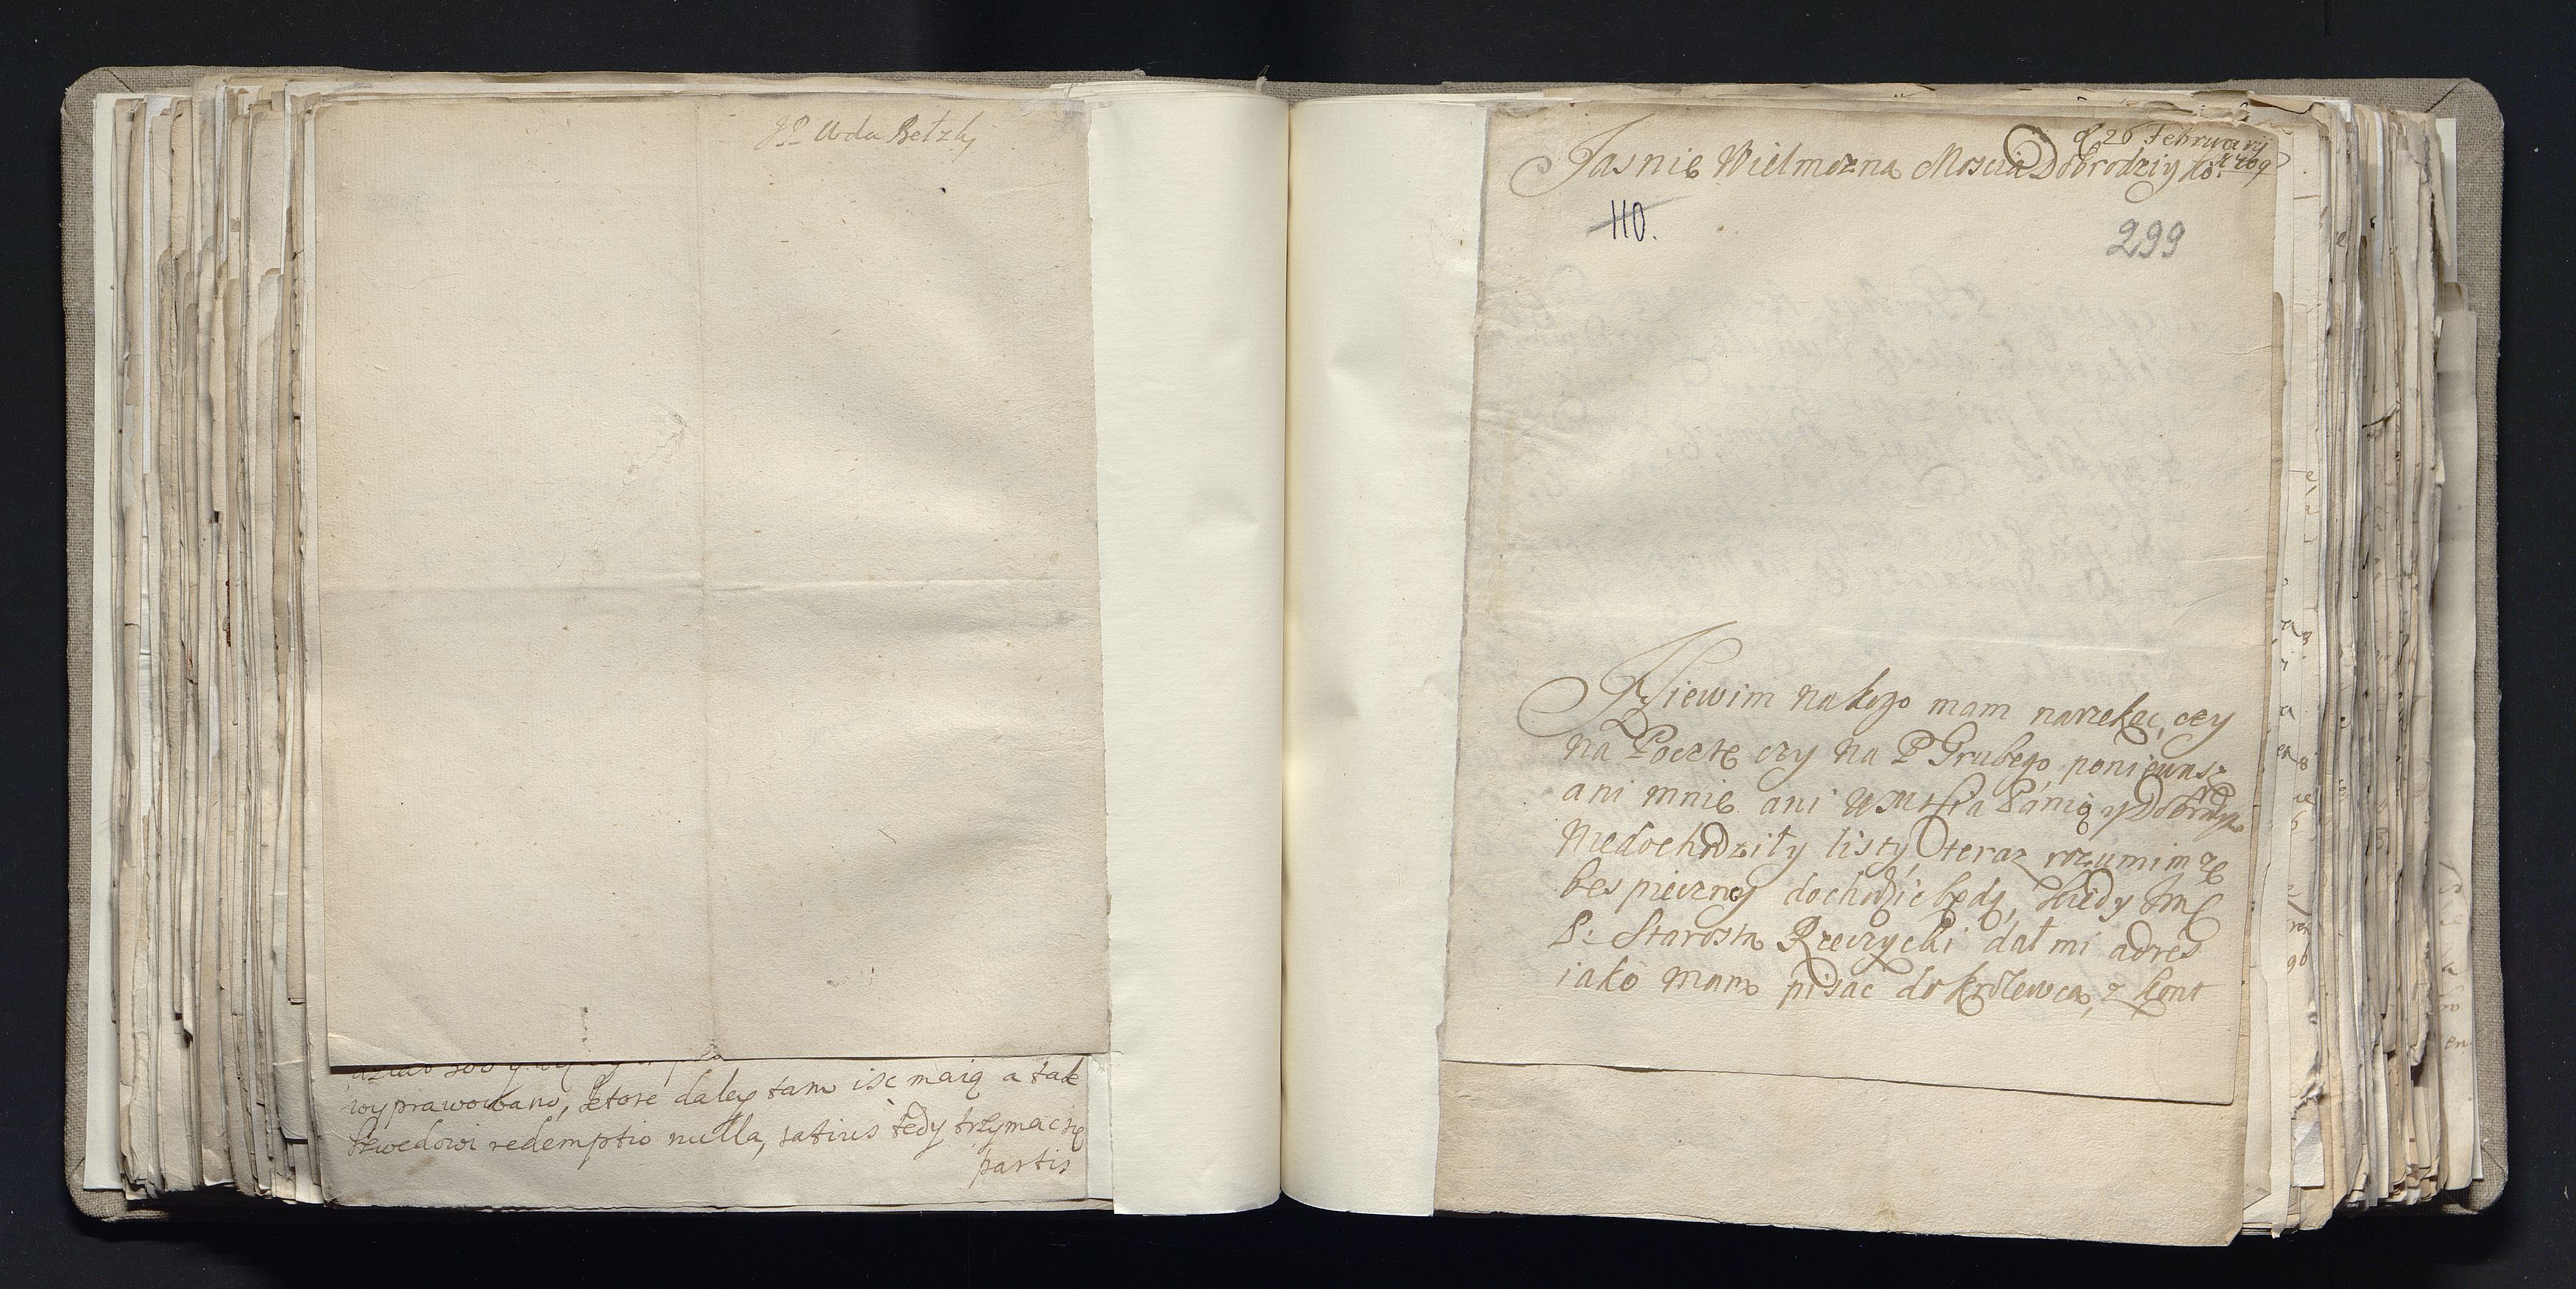 JP Wda Bełzky
wyprawowano, ktore daley tam isc maią a tak
Szwedowi redemptio nulla, satius tedy trzymac się
partis
d 26 February
Jasnie Wielmozna Moscia Dobrodziyko. 1709
110.
299
Niewim na kogo mam narzekac, czy
na Pocztę czy na P Grubego, poniewasz
ani mnie ani WMM Panią y Dobrodzyę
Niedochodziły listy, teraz rozumim ze
bespieczney dochodzic będą, kiedy Jmc
P: Starosta Rzeczycki dał mi adres
iako mam pisac do Krolewca, z kont